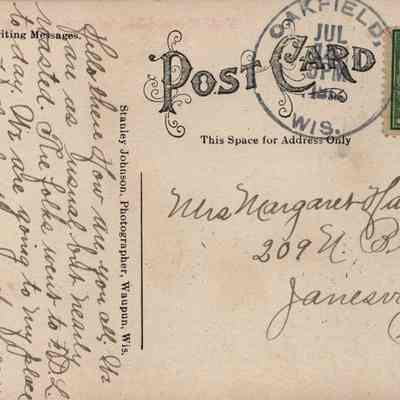 riting Messages.
POST CARD
OAKFIELD,
JUL
PM
WIS.
This Space for Address Only
Stanley Johnson, Photographer, Waupun, Wis.
Hello there How are you all. We
are as usual but nearly
roasted. The folks went to F.D.L.
to day. We are going to my place
Mrs Margaret Ha
209 N. B
Janesv